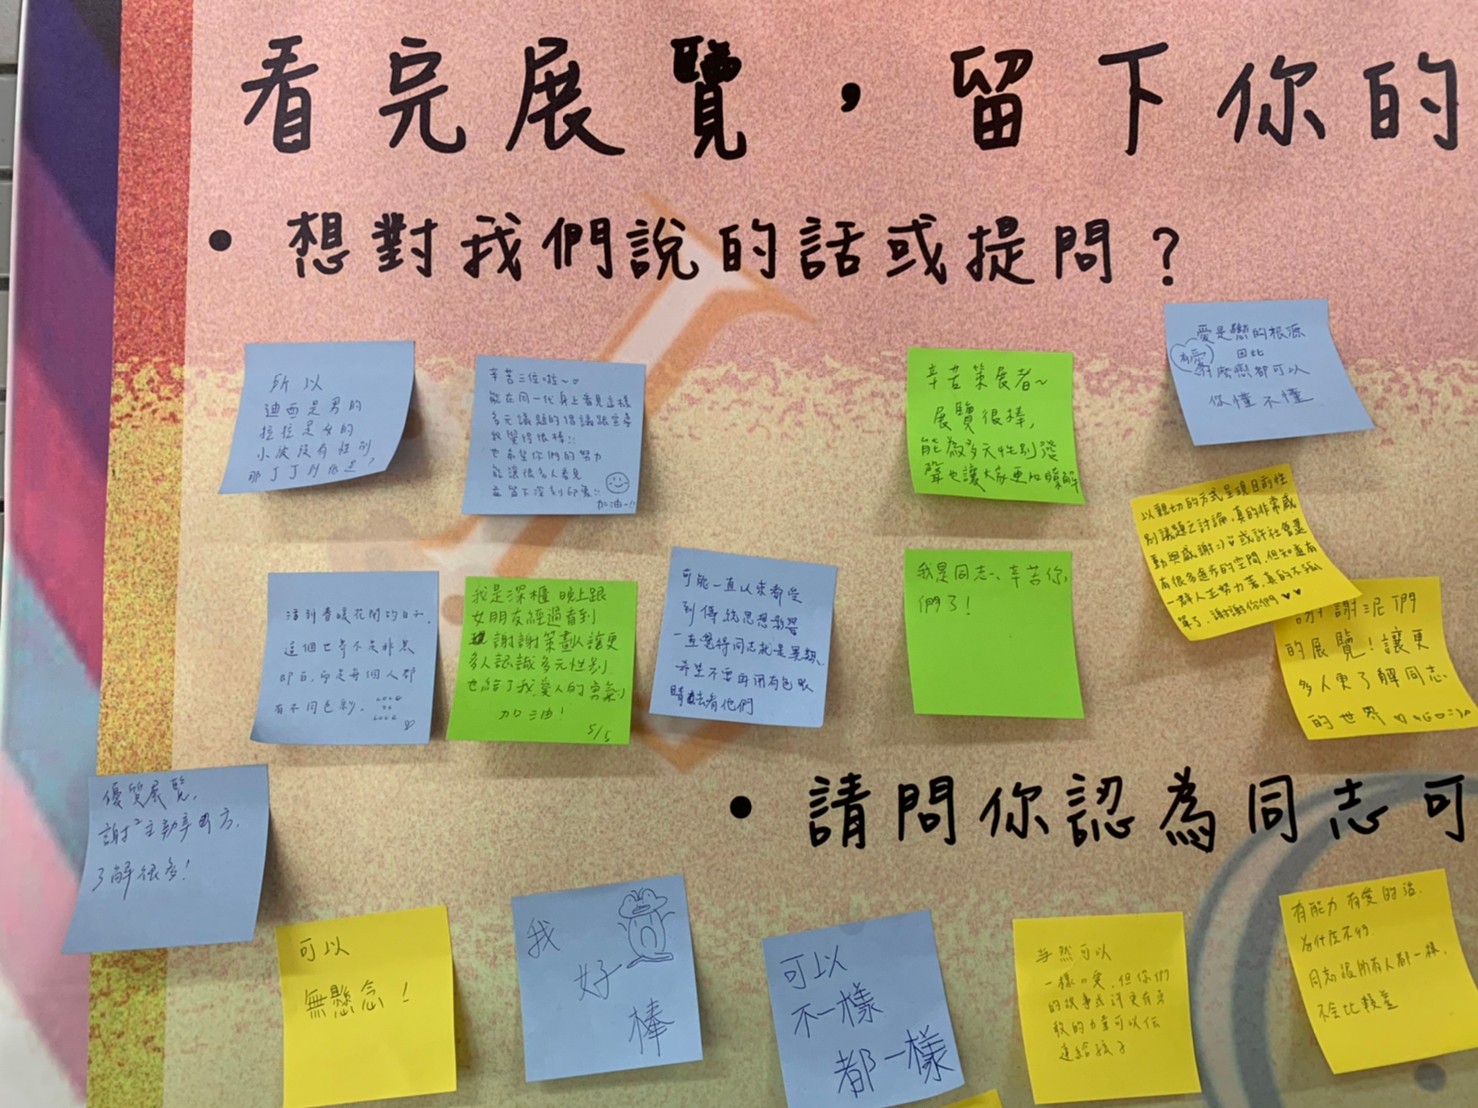 看完展覽，留下你的
• 想對我們說的話或提問？
所以
迪西是男的
拉拉是女的
小波沒有性別
那丁丁到底是？
辛苦三位啦～
能在同一代身上看見這樣
多元議題的倡議跟宣導
我覺得很棒!!
也希望你們的努力
能讓很多人看見
並留下深刻印象!!
加油~!!
辛苦策展者~
展覽很棒，
能為多元性別發
聲也讓大家更加瞭解
愛是戀的根源
有愛
因此
對麼戀都可以
你懂不懂
以親切的方式呈現目前性
別議題之討論，真的非常感
動與感謝:) 或許社會還
有很多進步的空間，但知道有
一群人正努力著，真的不孤
單了，謝謝你們♥♥
活到春暖花開的日子，
這個世界不是非黑
即白，而是每個人都
有不同色彩。
LOVE
IS
LOVE
我是深櫃 晚上跟
女朋友經過看到
謝謝策劃人讓更
多人認識多元性別
也給了我愛人的勇氣
加油！
5/5
可能一直以來都受
到傳統思想影響
一直覺得同志就是異類、
希望不要再用有色眼
睛去看他們
我是同志、辛苦你
們了！
謝謝泥們
的展覽！讓更
多人更了解同志
的世界
優質展覽，
謝²主動辛

了解很多！
• 請問你認為同志可
可以
無懸念！
我
好
棒
可以
不一樣
都一樣
當然可以
一樣の愛，但你們
的故事或許更有勇
敢的力量可以傳
遞給孩子
有能力 有愛的話，
為什麼不行
同志跟所有人都一樣，
不會比較差